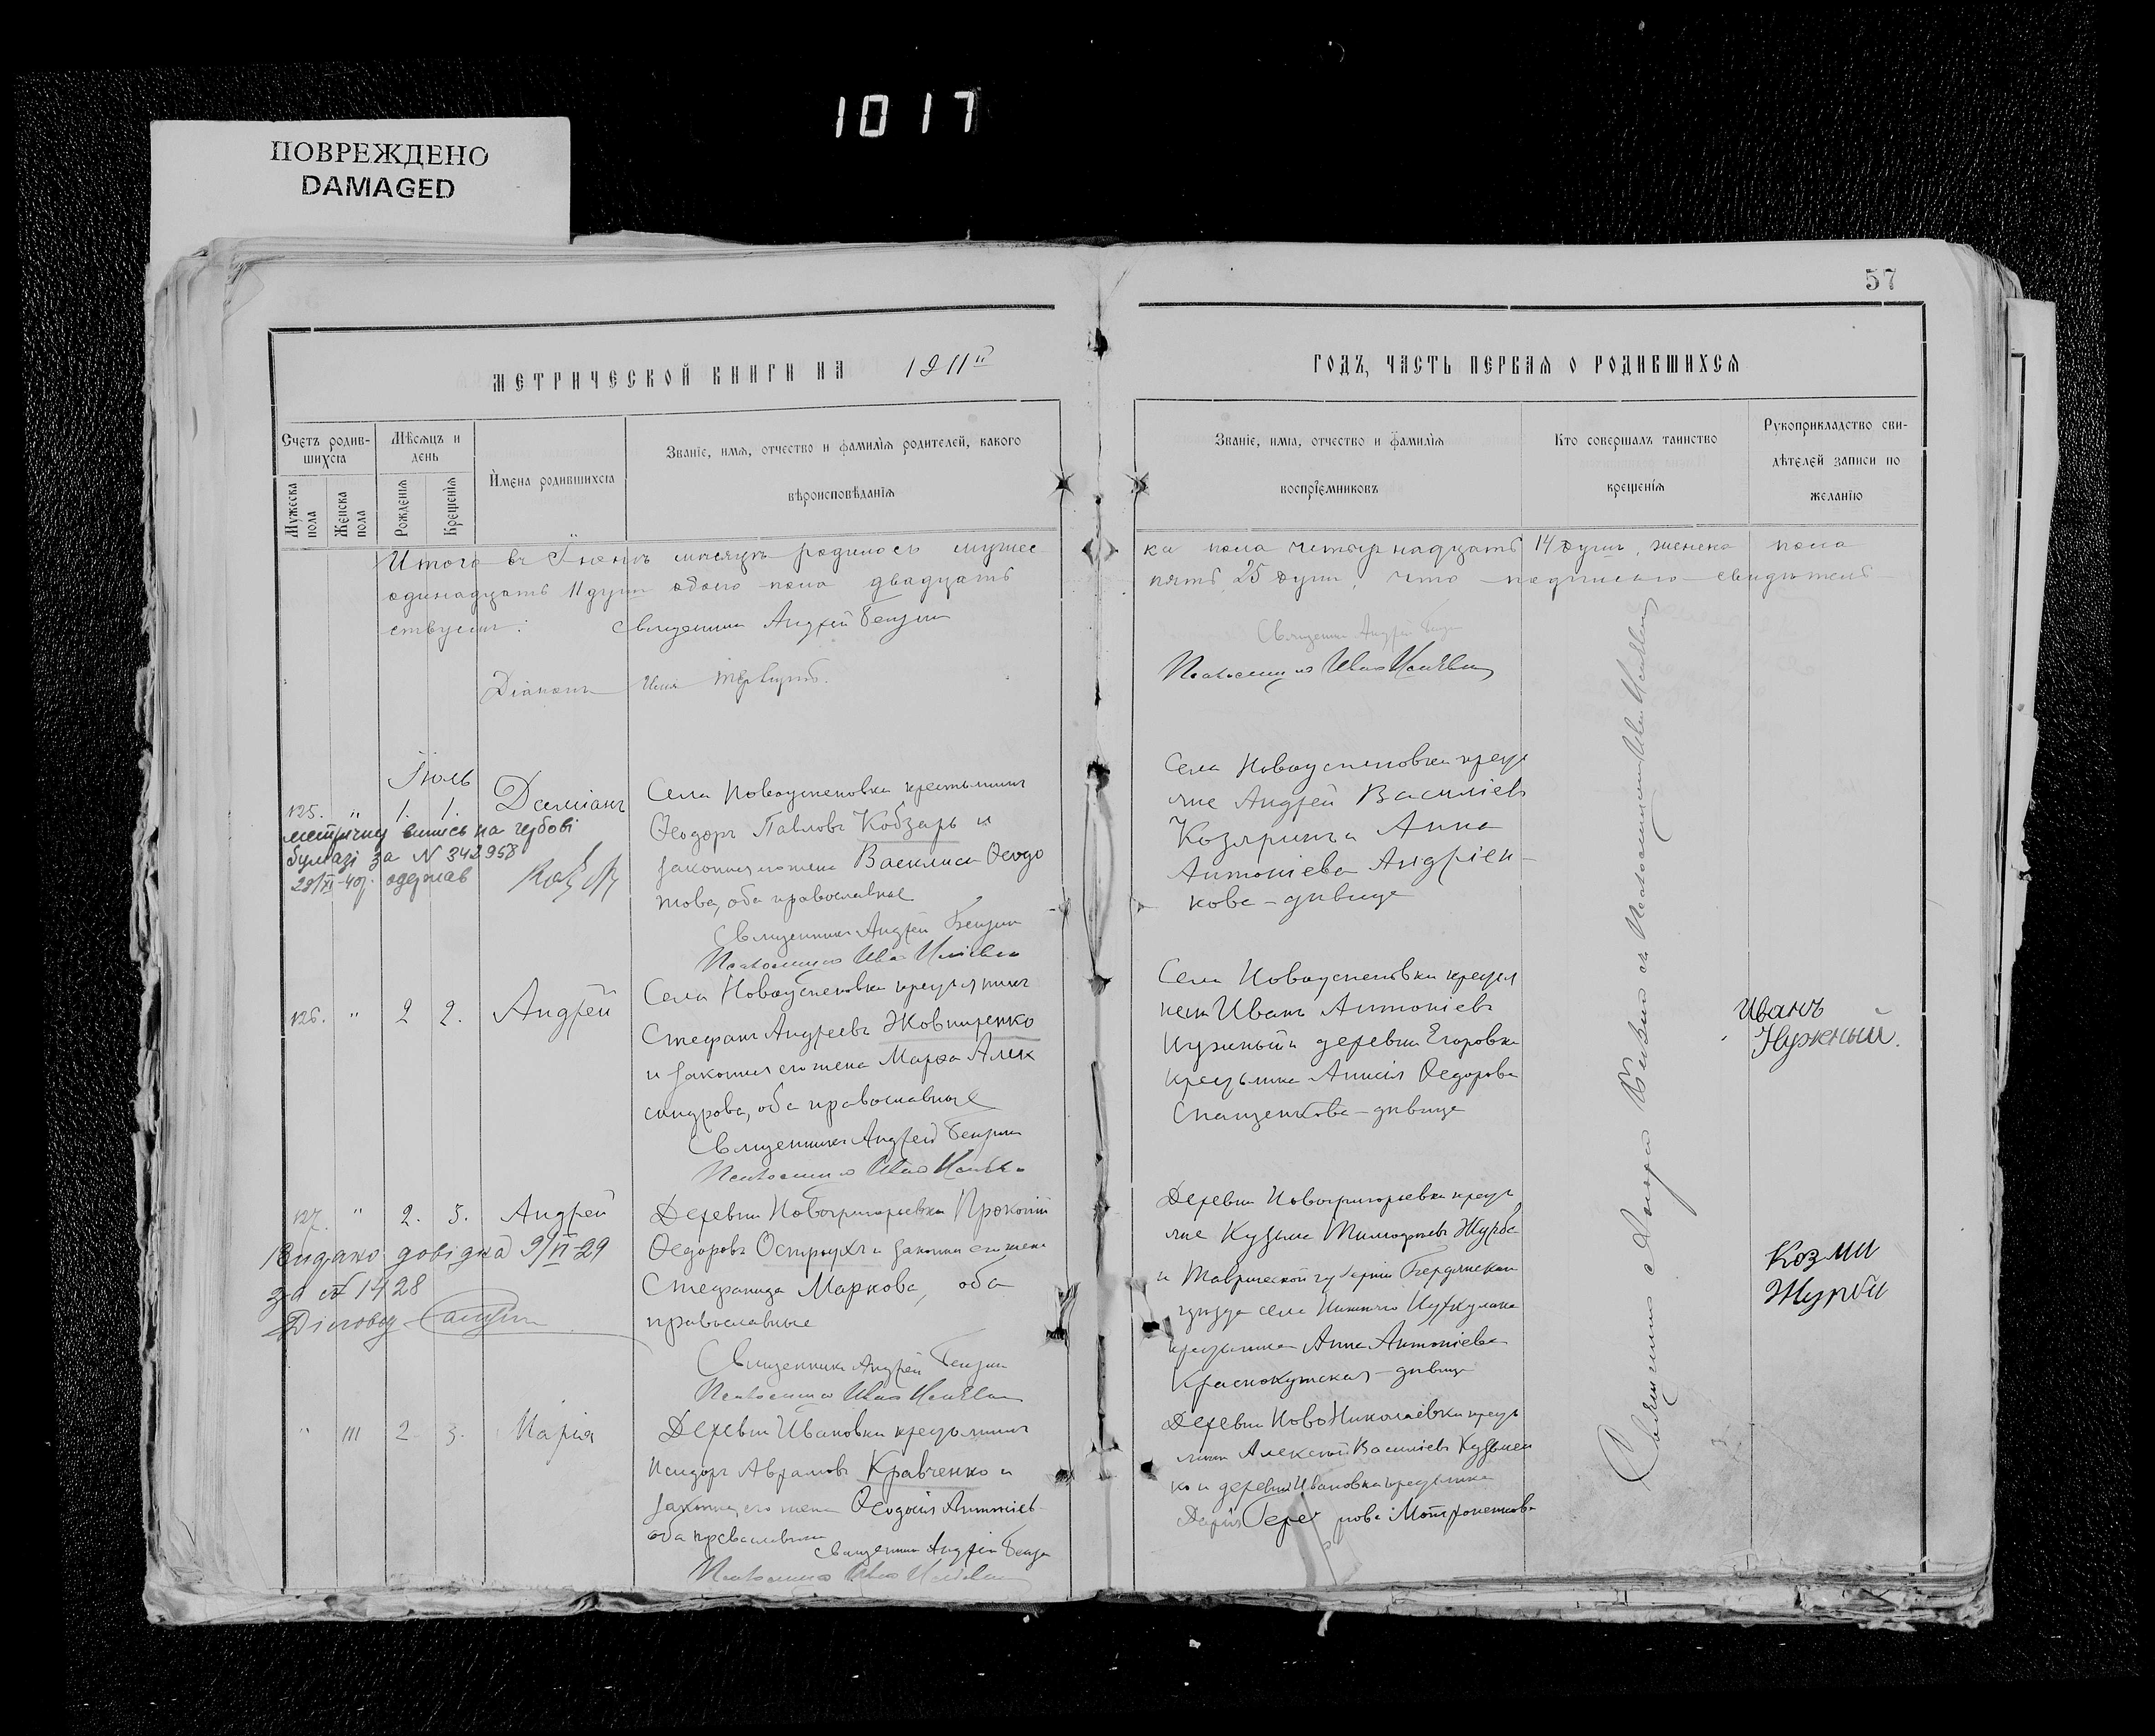 1017
ПОВРЕЖДЕНО
DAMAGED
57
МЕТРИЧЕСКОЙ КНИГИ НА 1911й
ГОДЪ, ЧАСТЬ ПЕРВАЯ О РОДИВШИХСЯ
Счетъ родив-
шихся
Мужеска пола
Женска пола
Мѣсяцъ и
день
Рожденія
Крещенія
Имена родившихся
Званіе, имя, отчество и фамилія родителей, какого
вѣроисповѣданія
Званіе, имя, отчество и фамилія
воспріемниковъ
Кто совершалъ таинство
крещенія
Рукоприкладство сви-
дѣтелей записи по
желанію
Итого въ Іюнѣ мѣсяцѣ родилось мужес
ка пола четырнадцать 14 душъ, женска пола
одинадцать 11 душъ обоего пола двадцать
пять 25 душъ, что подписью свидѣтель
ствуемъ:
Священникъ Андрей
Діаконъ
Священникъ Андрей
Псаломщикъ Иванъ
Іюль
125. " 1. 1. Даміанъ
метричну випись на гербові
бумазі за N 342958
28/XI-40р. одержав
Села Новоуспеновки крестьянинъ
Ѳеодоръ Павловъ Кобзарь и
законная его жена Василиса Ѳеодо
това, оба православные
Священникъ Андрей
Псаломщикъ Иванъ
Села Новоуспеновки кресть
яне Андрей Василіевъ
Козяринъ и Анна
Антоніева Андріен-
кова - дѣвица
126. " 2 2. Андрей
Села Новоуспеновки крестьянинъ
Стефанъ Андреевъ Жовниренко
и законная его жена Марѳа Алек
сандрова, оба православные
Священникъ Андрей
Псаломщикъ Иванъ
Села Новоуспеновки крестья
нинъ Иванъ Антоніевъ
Нужный и деревни Егоровки
крестьянка Анисія Ѳедорова
дѣвица
Иванъ
Нужный.
127. " 2. 3. Андрей
Видано довідка 9/VI-29
за № 1428
Діловод
Деревни Новогригорьевки Прокопій
Ѳедоровъ Остроухъ и законная его жена
Стефанида Маркова, оба
православные
Священникъ Андрей
Псаломщикъ Иванъ
Деревни Новогригорьевки кресть
яне Кузьма Тимофеевъ Журба
и Таврической губерніи Бердянскаго
уѣзда села Нижнихъ
крестьянка Анна Антоніева
Краснокутская - дѣвица
Козма
Журба
" 111 2. 3. Марія
Деревни Ивановки крестьянинъ
Исидоръ Аврамовъ Кравченко и
законная его жена Ѳеодосія Антоніева
оба православные
Священникъ Андрей
Псаломщикъ Иванъ
Деревни НовоНиколаевки кресть
янинъ Алексѣй Василіевъ Кузьмен
ко и деревни Ивановки крестьянка
Дарія
Священникъ Андрей съ Псаломщикомъ Иваномъ